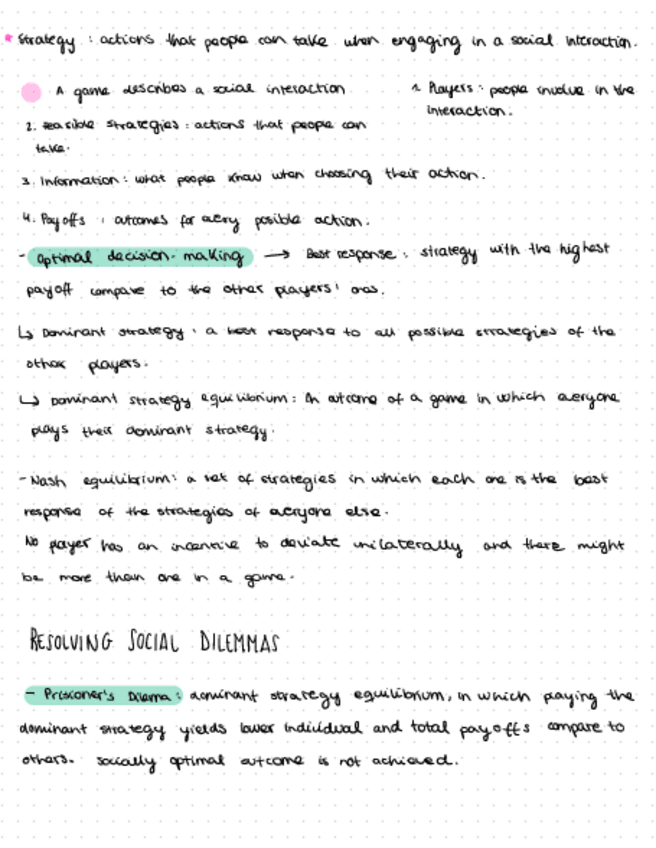 * Strategy : actions that people can take when engaging in a social interaction.
A game describes a social interaction
1. Players : people involve in the
interaction.
2. feasible strategies : actions that people can
take.
3. Information : what people know when choosing their action.
4. Payoffs : outcomes for every posible action.
- Optimal decision-making → Best response : strategy with the highest
payoff compare to the other players' ones.
↳ Dominant strategy : a best response to all possible strategies of the
other players.
↳ Dominant strategy equilibrium : An outcome of a game in which everyone
plays their dominant strategy.
- Nash equilibrium : a set of strategies in which each one is the best
response of the strategies of everyone else.
No player has an incentive to deviate unilaterally and there might
be more than one in a game.
RESOLVING SOCIAL DILEMMAS
- Prisioner's Dilema : dominant strategy equilibrium, in which playing the
dominant strategy yields lower individual and total payoffs compare to
others. socially optimal outcome is not achieved.